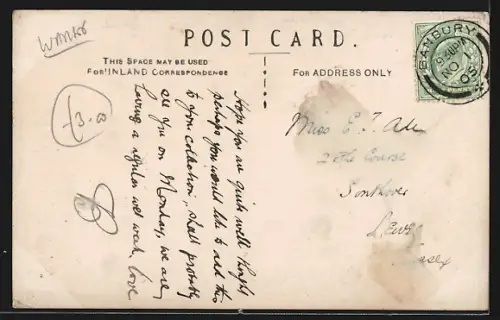 WARKS
POST CARD.
THIS SPACE MAY BE USED
FOR INLAND CORRESPONDENCE
FOR ADDRESS ONLY
BANBURY
NO
05
Hope you are quite well thought
perhaps you would like to add this
to your collection, shall probably
see you on Monday, we are
having a regular wet week. Love
Miss E
2 The Course
Southover
Lewes